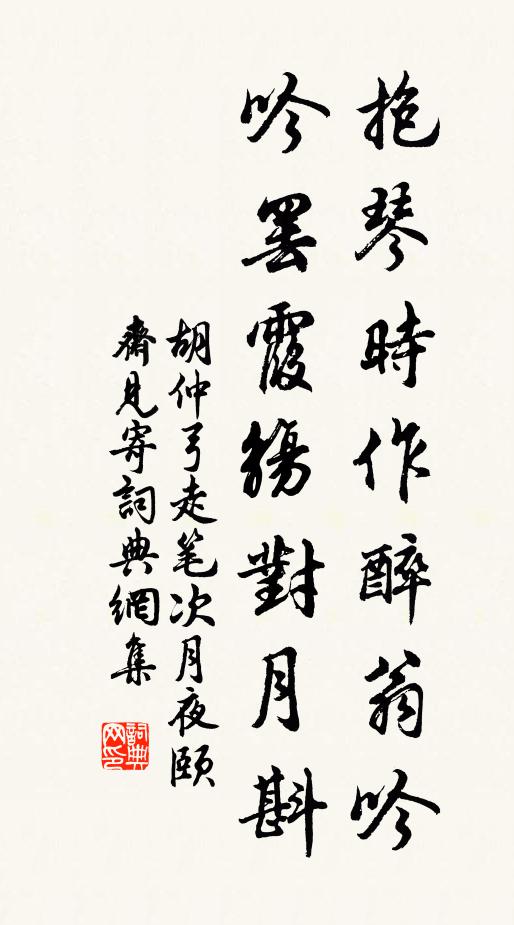 抱琴時作醉翁吟
吟罷霞觴對月斟
胡仲弓走笔次月夜頤
齋見寄詞典網集
詞典
网印